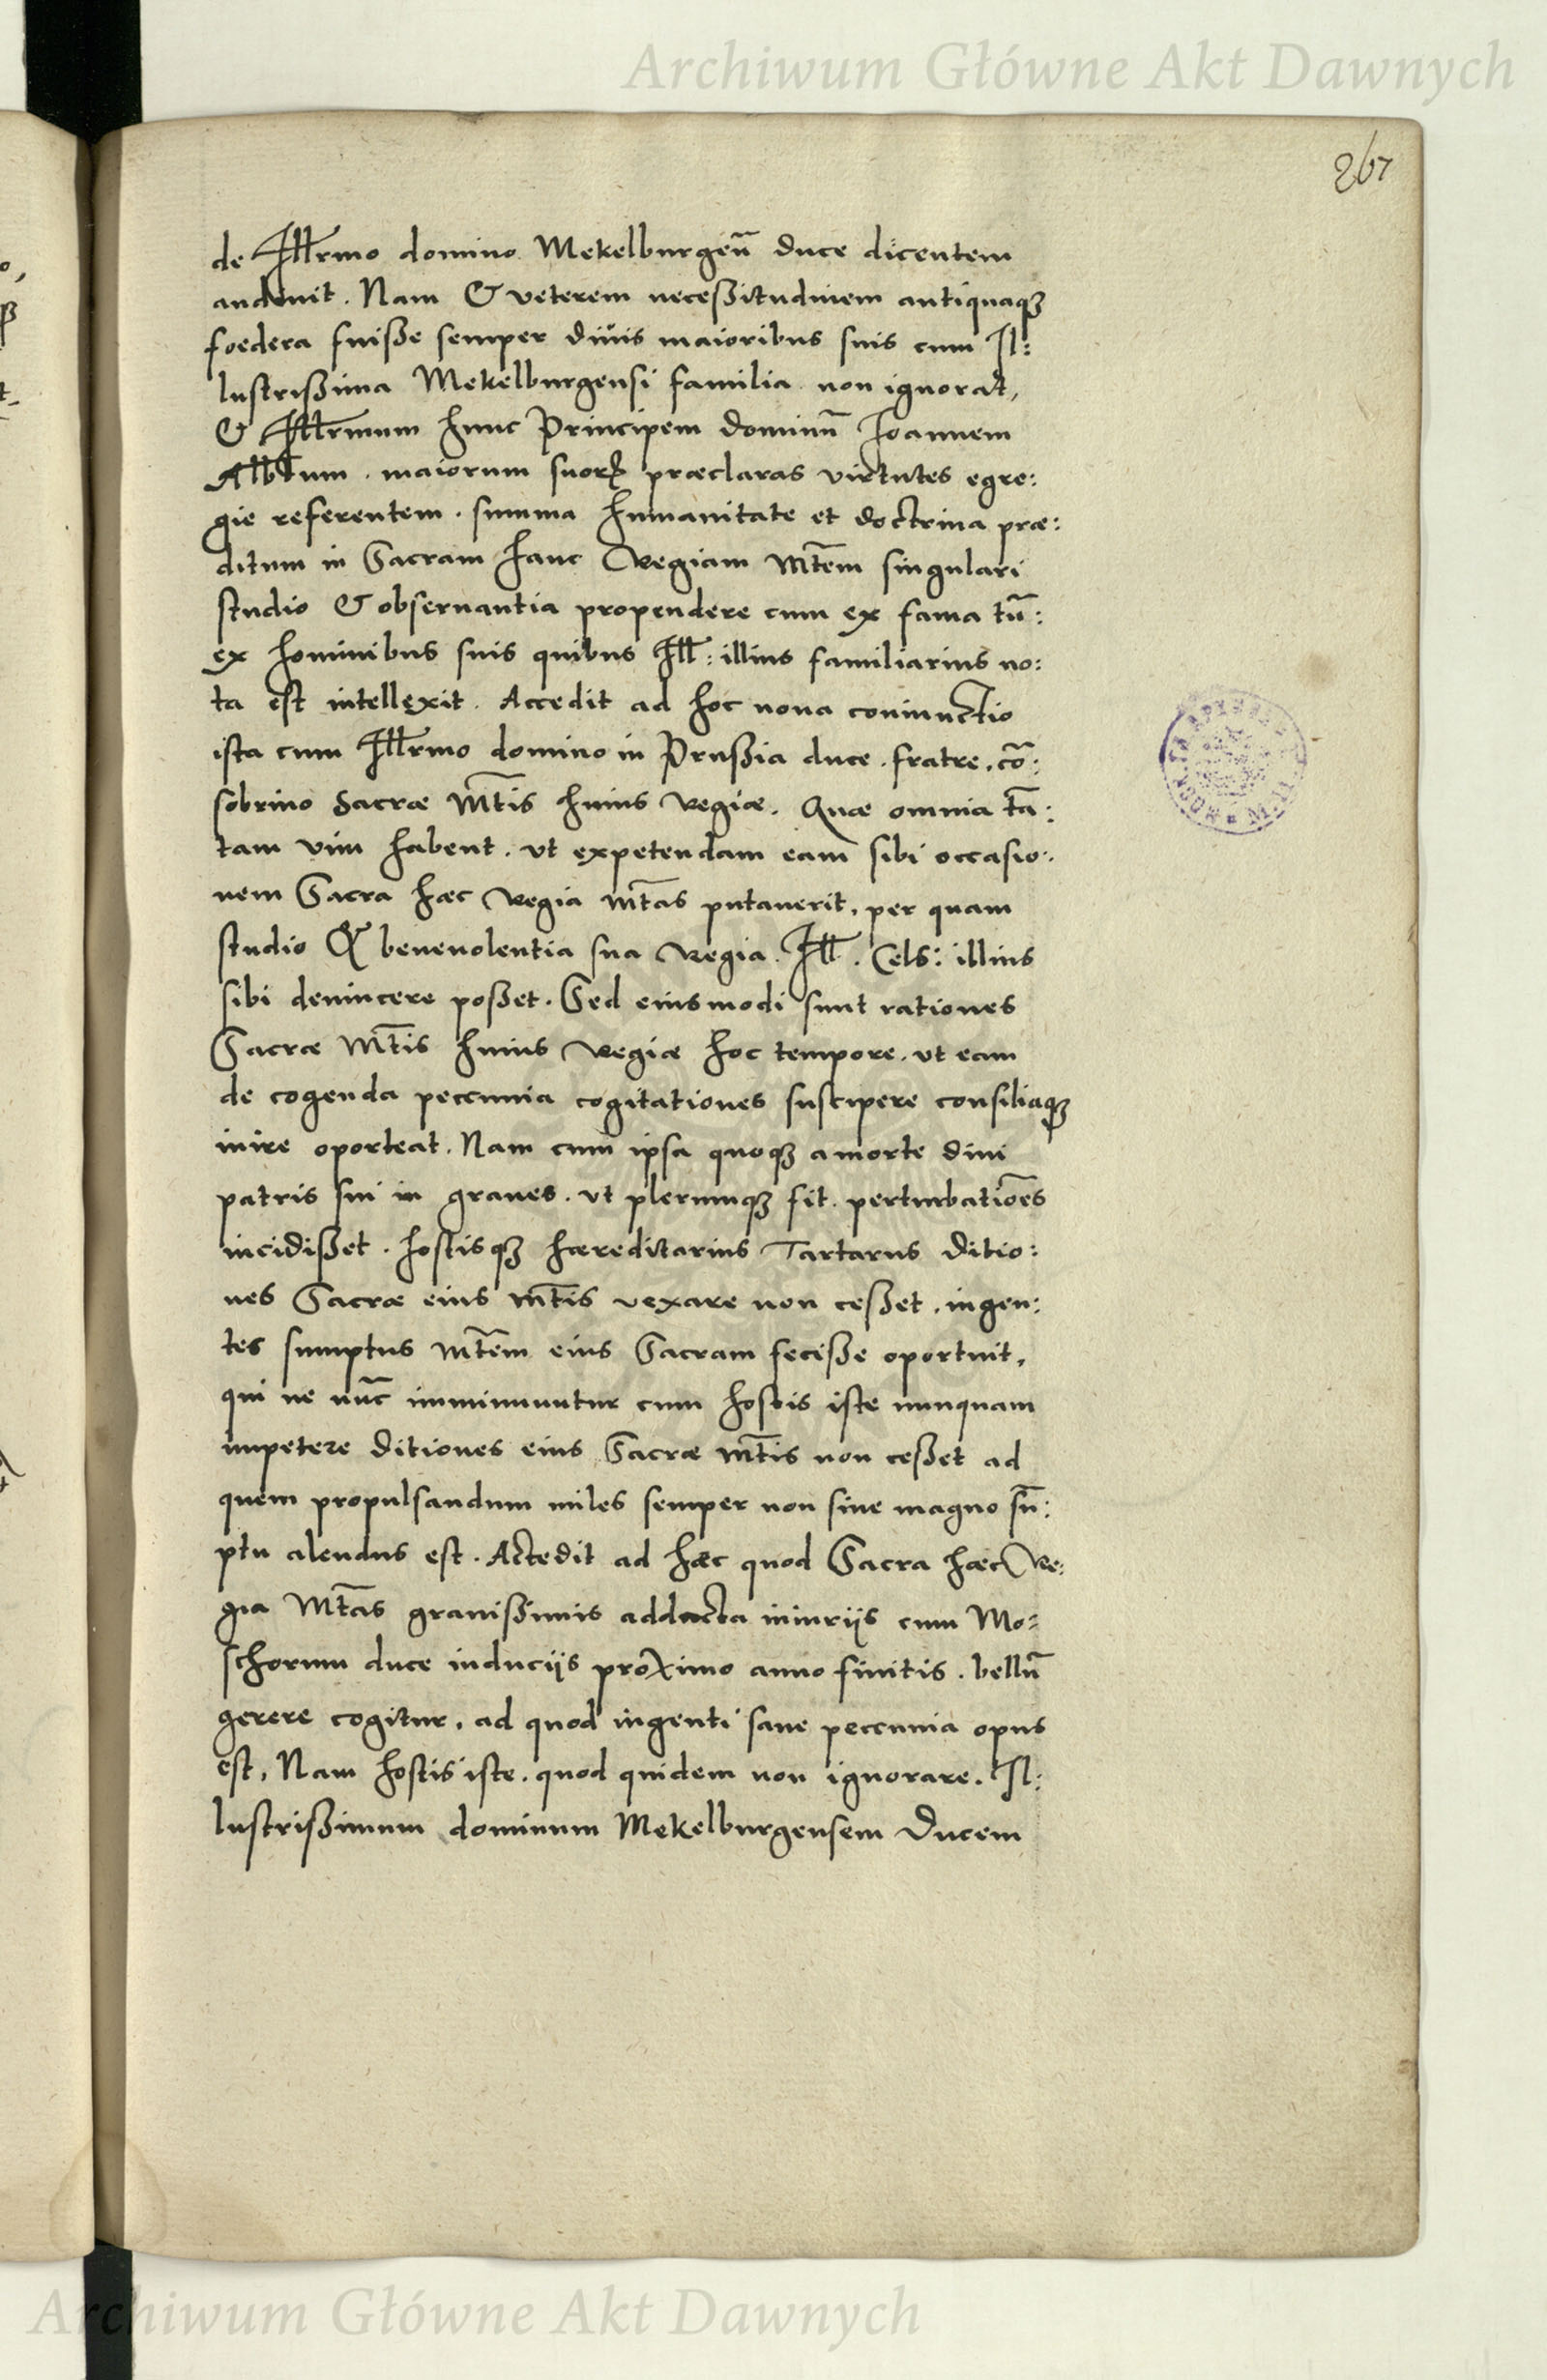 Archiwum Główne Akt Dawnych
267
de Illr̄mo domino Mekelburgeñ duce dicentem
audiuit. Nam & veterem neceßitudinem antiquaqȝ
foedera fuiße semper diuis maioribus suis cum Il:
lustrißima Mekelburgensi familia non ignorat,
& Illr̄mum hunc Principem dominū Ioannem
Albtum. maiorum suorꝝ præclaras virtutes egre:
gie referentem. summa humanitate et doctrina præ:
ditum in Sacram hanc Regiam Mt̄em singulari
studio & obseruantia propendere cum ex fama tū:
ex hominibus suis quibus Ill: illius familiarius no:
ta est intellexit. Accedit ad hoc noua coniunctio
ista cum Illr̄mo domino in Prußia duce. fratre. cō:
sobrino Sacræ Mt̄is huius Regiæ. Quæ omnia tā:
tam vim habent. vt expetendam eam sibi occasio:
nem Sacra hæc Regia Mt̄as putauerit, per quam
studio & beneuolentia sua Regia. Ill. Cels: illius
sibi deuincere poßet. Sed eiusmodi sunt rationes
Sacræ Mt̄is huius Regiæ hoc tempore. vt eam
de cogenda peccunia cogitationes suscipere consiliaqȝ
inire oporteat. Nam cum ipsa quoqȝ a morte diui
patris sui in graues. vt plerumqȝ fit. perturbatiōes
incidißet. hostisqȝ hæreditarius Tartarus ditio:
nes Sacræ eius Mt̄is vexare non ceßet, ingen:
tes sumptus Mt̄em eius Sacram feciße oportuit,
qui ne nūc imminuuntur cum hostis iste nunquam
impetere ditiones eius Sacræ Mt̄is non ceßet ad
quem propulsandum miles semper non sine magno sū:
ptu alendus est. Accedit ad hæc quod Sacra hæc Re:
gia Mt̄as grauißimis adducta iniurijs cum Mo:
schorum duce inducijs proximo anno finitis. bellū
gerere cogitur, ad quod ingenti sane peccunia opus
est, Nam hostis iste. quod quidem non ignorare. Il:
lustrißimum dominum Mekelburgensem Ducem
Archiwum Główne Akt Dawnych